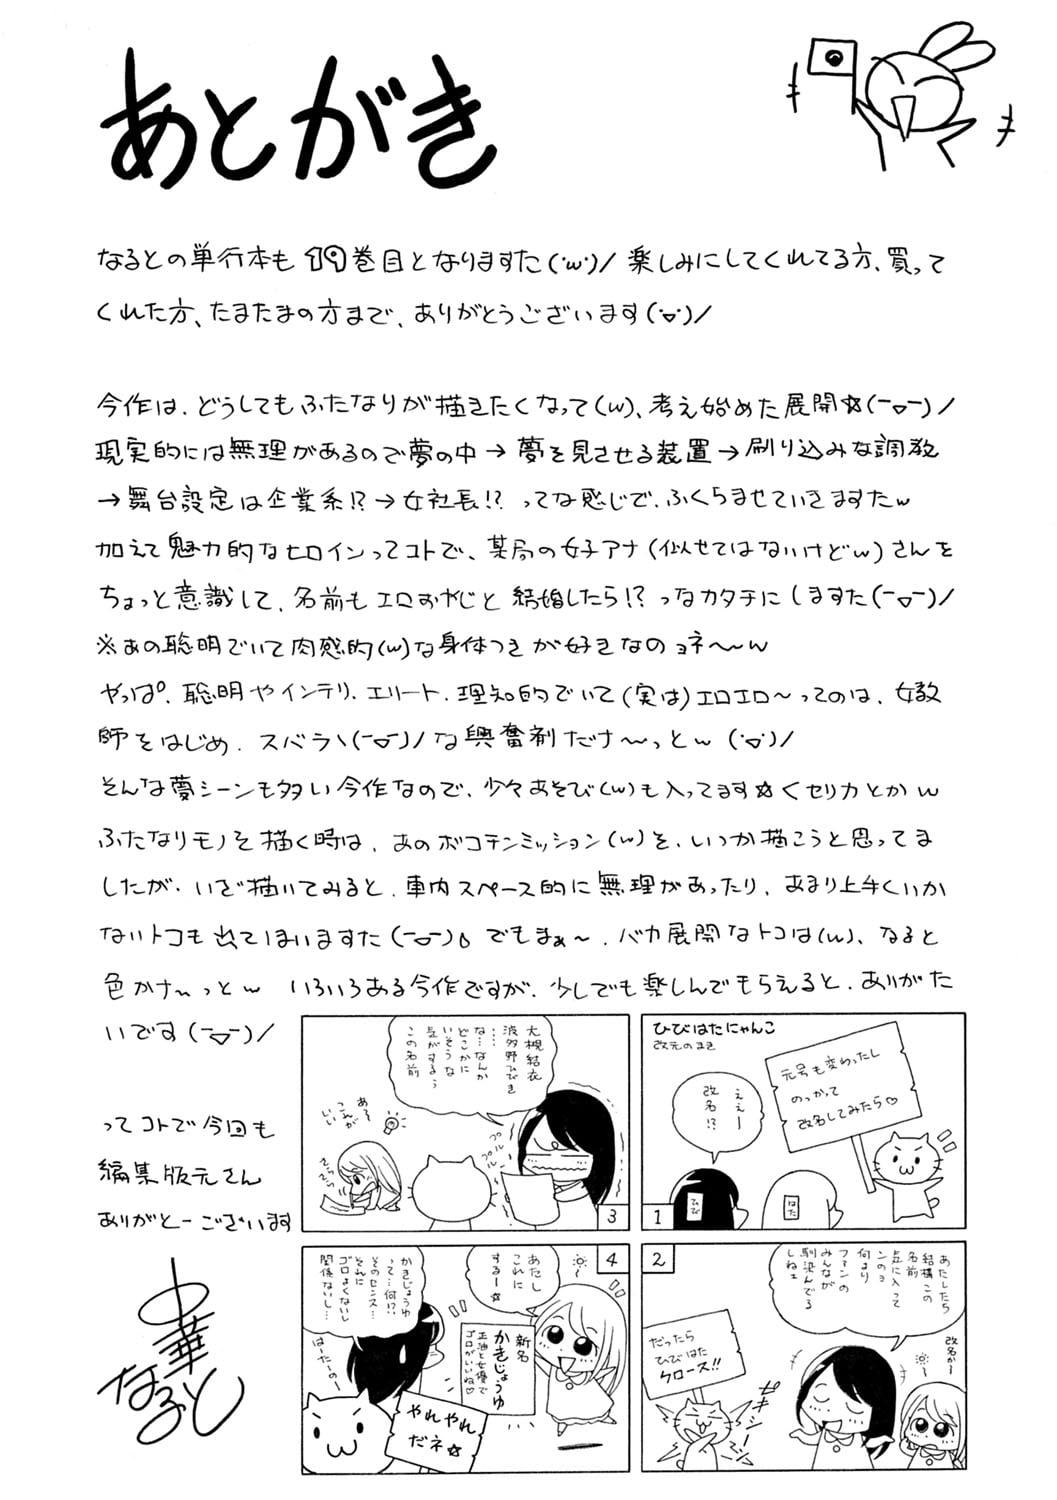 あとがき
なるとの単行本も19巻目となりますた(・w・)/ 楽しみにしてくれてる方、買って
くれた方、たまたまの方まで、ありがとうございます(・▽・)/
今作は、どうしてもふたなりが描きたくなって(w)、考え始めた展開☆(ー▽ー)/
現実的には無理があるので夢の中→夢を見させる装置→刷り込みな調教
→舞台設定は企業系!?→女社長!? ってな感じで、ふくらませていきますたw
加えて魅力的なヒロインってコトで、某局の女子アナ(似せてはないけどw)さんを
ちょっと意識して、名前もエロおやじと結婚したら!? っなカタチにしますた(ー▽ー)/
※あの聡明でいて肉感的(w)な身体つきが好きなのョネ〜〜w
やっぱ、聡明やインテリ、エリート、理知的でいて(実は)エロエロ〜ってのは、女教
師をはじめ、スバラヽ(ー▽ー)/な興奮剤だナ〜っとw (・▽・)/
そんな夢シーンも多い今作なので、少々あそび(w)も入ってます☆くセリカとかw
ふたなりモノを描く時は、あのボコチンミッション(w)を、いつか描こうと思ってま
したが、いざ描いてみると、車内スペース的に無理があったり、あまり上手くいか
ないトコも出てしまいますた(ー▽ー)。でもまぁ〜、バカ展開なトコは(w)、なると
色かナ〜っとw いろいろある今作ですが、少しでも楽しんでもらえると、ありがた
いです(ー▽ー)/
ってコトで今回も
編集版元さん
ありがとーございます
中華
なると
ひびはたにゃんこ
改元のまき
元号も変わったし
のっかって
改名してみたら♡
ええー
改名!?
ひび
はた
1
あたしたち
結構この
名前
気に入って
ンのョ
何より
ファンの
みんなが
馴染んでる
しねェ
改名かー
だったら
ひびはた
クロース!!
2
大槻結衣
波多野ひびき
……
な…なんか
どこかに
いそうな
気がするぅ
この名前
プル
プル
プル
ある
こんなが
いい
3
あたし
これに
するー☆
新名
かきじょうゆ
正油と女優で
ゴロがいいね♡
かきじょうゆ
って…何!?
そのセンス…
それに
ゴロよくないし
関係ないし…
はーたぃのー
やれやれ
だネ☆
4